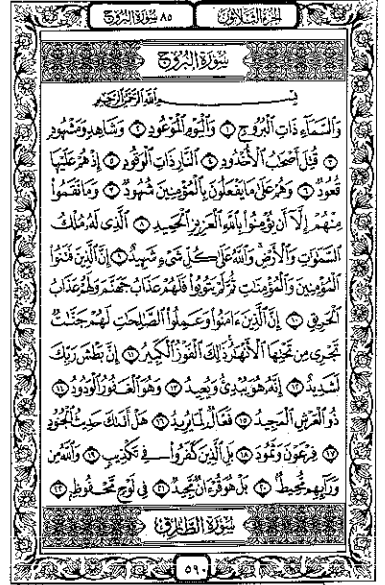 الجزء الثلاثون
٨٥ سورة البروج
سورة البروج
بِسْمِ اللَّهِ الرَّحْمَٰنِ الرَّحِيمِ
وَالسَّمَاءِ ذَاتِ الْبُرُوجِ ١ وَالْيَوْمِ الْمَوْعُودِ ٢ وَشَاهِدٍ وَمَشْهُودٍ
٣ قُتِلَ أَصْحَابُ الْأُخْدُودِ ٤ النَّارِ ذَاتِ الْوَقُودِ ٥ إِذْ هُمْ عَلَيْهَا
قُعُودٌ ٦ وَهُمْ عَلَىٰ مَا يَفْعَلُونَ بِالْمُؤْمِنِينَ شُهُودٌ ٧ وَمَا نَقَمُوا
مِنْهُمْ إِلَّا أَن يُؤْمِنُوا بِاللَّهِ الْعَزِيزِ الْحَمِيدِ ٨ الَّذِي لَهُ مُلْكُ
السَّمَاوَاتِ وَالْأَرْضِ وَاللَّهُ عَلَىٰ كُلِّ شَيْءٍ شَهِيدٌ ٩ إِنَّ الَّذِينَ فَتَنُوا
الْمُؤْمِنِينَ وَالْمُؤْمِنَاتِ ثُمَّ لَمْ يَتُوبُوا فَلَهُمْ عَذَابُ جَهَنَّمَ وَلَهُمْ عَذَابُ
الْحَرِيقِ ١٠ إِنَّ الَّذِينَ آمَنُوا وَعَمِلُوا الصَّالِحَاتِ لَهُمْ جَنَّاتٌ
تَجْرِي مِن تَحْتِهَا الْأَنْهَارُ ذَٰلِكَ الْفَوْزُ الْكَبِيرُ ١١ إِنَّ بَطْشَ رَبِّكَ
لَشَدِيدٌ ١٢ إِنَّهُ هُوَ يُبْدِئُ وَيُعِيدُ ١٣ وَهُوَ الْغَفُورُ الْوَدُودُ ١٤
ذُو الْعَرْشِ الْمَجِيدُ ١٥ فَعَّالٌ لِّمَا يُرِيدُ ١٦ هَلْ أَتَاكَ حَدِيثُ الْجُنُودِ
١٧ فِرْعَوْنَ وَثَمُودَ ١٨ بَلِ الَّذِينَ كَفَرُوا فِي تَكْذِيبٍ ١٩ وَاللَّهُ مِن
وَرَائِهِم مُّحِيطٌ ٢٠ بَلْ هُوَ قُرْآنٌ مَّجِيدٌ ٢١ فِي لَوْحٍ مَّحْفُوظٍ ٢٢
سورة الطارق
٥٩٠